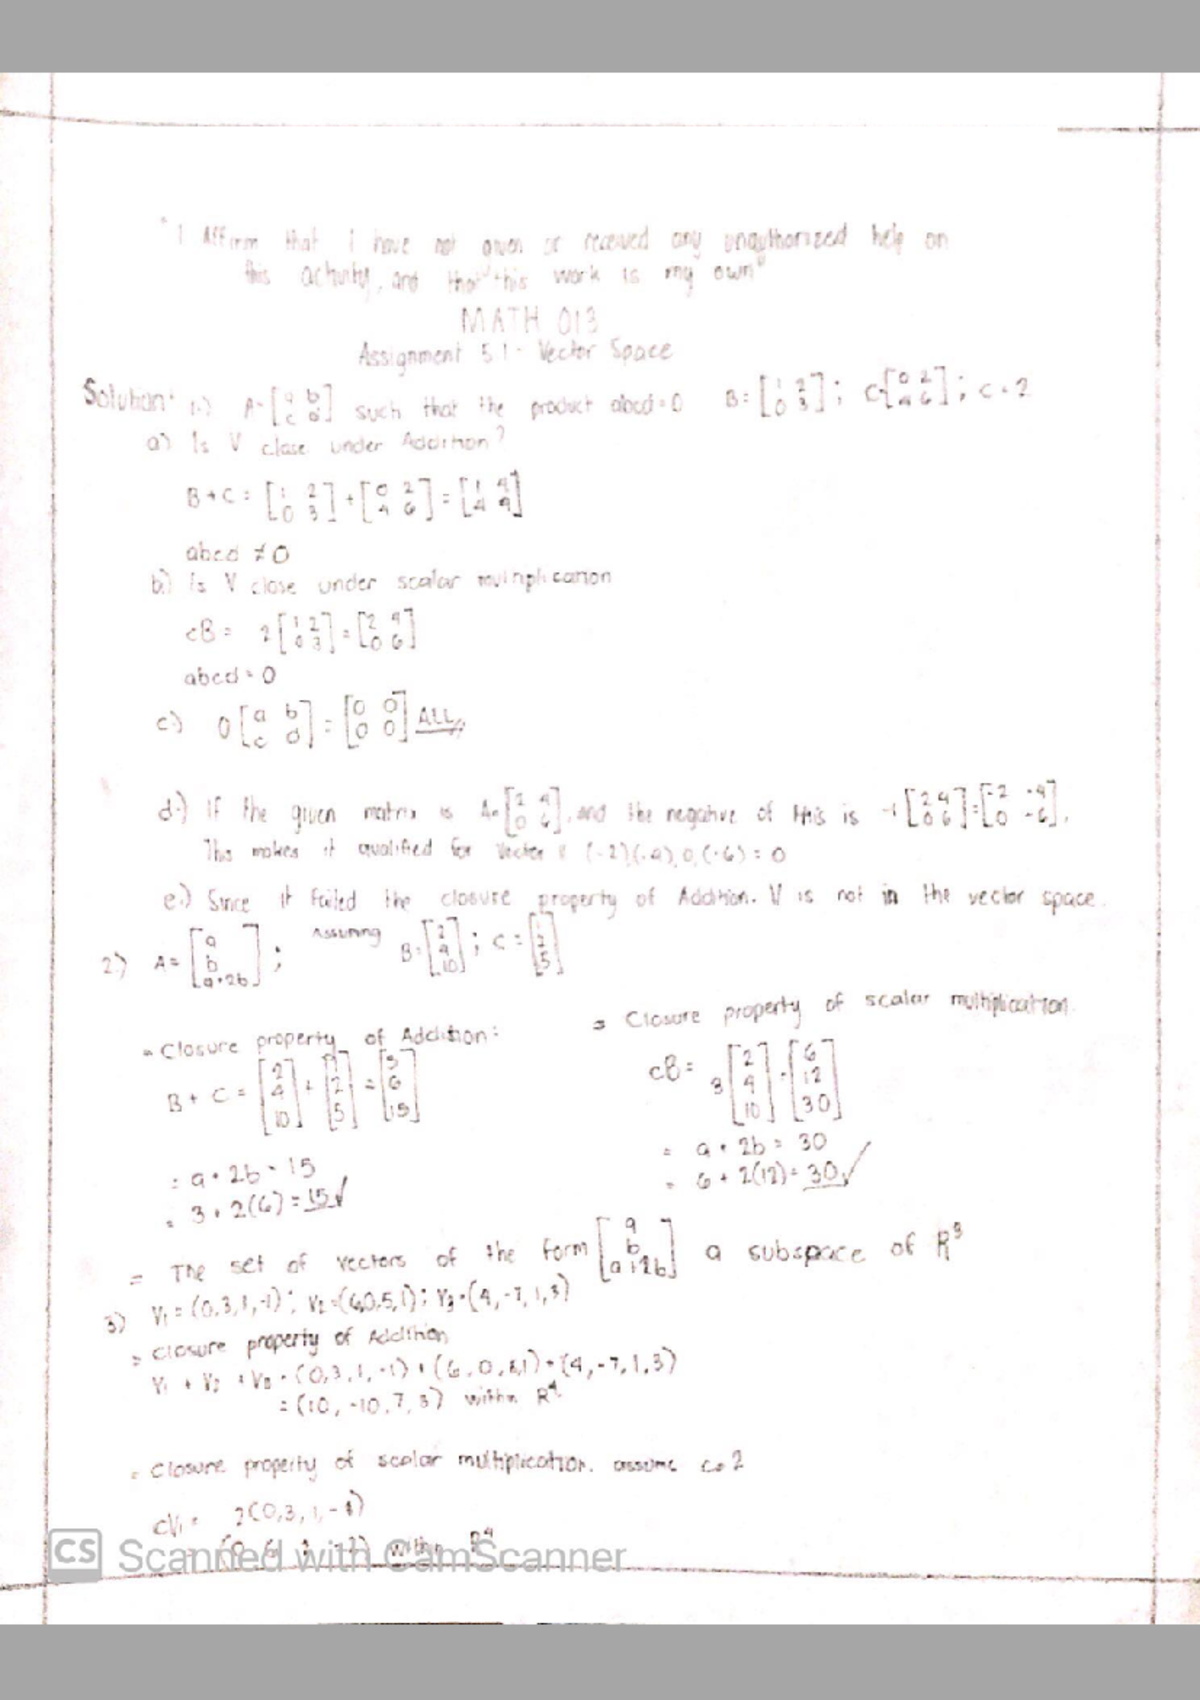 "I Affirm that i have not given or received any unauthorized help on
this activity, and that this work is my own"
MATH 013
Assignment 5.1 - Vector Space
Solution: 1.) A=[a b c d] such that the product abcd=0 B=[1 2 0 3]; C=[0 2 4 6]; c=2
a) Is V close under Addition?
B+C=[1 2 0 3]+[0 2 4 6]=[1 4 4 9]
abcd ≠ 0
b.) Is V close under scalar multiplication
cB= 2[1 2 0 3]=[2 4 0 6]
abcd=0
c.) 0[a b c d]=[0 0 0 0] ALL
d.) If the given matrix is A=[2 4 0 6], and the negative of this is -1[2 4 0 6]=[-2 -4 0 -6].
This makes it qualified for Vector V (-2)(-4),0,(-6)=0
e.) Since it failed the closure property of Addition. V is not in the vector space.
2.) A=[a b a+2b]; Assuming B=[2 4 10]; C=[1 2 5]
= Closure property of Addition:
B+C=[2 4 10]+[1 2 5]=[3 6 15]
= a+2b=15
= 3+2(6)=15✓
= Closure property of scalar multiplication.
cB= 3[2 4 10]=[6 12 30]
= a+2b=30
= 6+2(12)=30✓
= The set of vectors of the form [a b a+2b] a subspace of R³
3) V1=(0,3,1,-1); V2=(6,0,5,1); V3=(4,-7,1,3)
= closure property of Addition
V1+V2+V3=(0,3,1,-1)+(6,0,5,1)+(4,-7,1,3)
=(10,-10,7,3) within R⁴
= Closure property of scalar multiplication. assume c=2
cV1= 2(0,3,1,-1)
within R⁴
CS Scanned with CamScanner